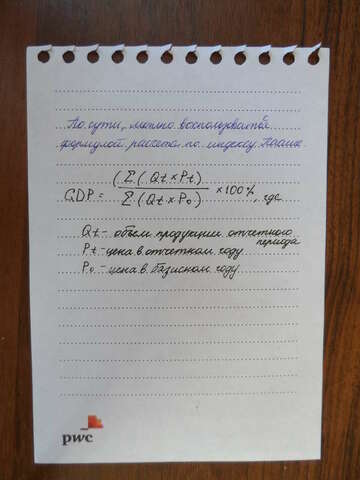 По сути, можно воспользоваться
формулой рассчета по индексу Пааше.
GDP = (Σ(Qt×Pt) / Σ(Qt×Po) ×100%, где
Qt - объем продукции отчетного
периода
Pt - цена в отчетном году
Po - цена в базисном году.
pwc